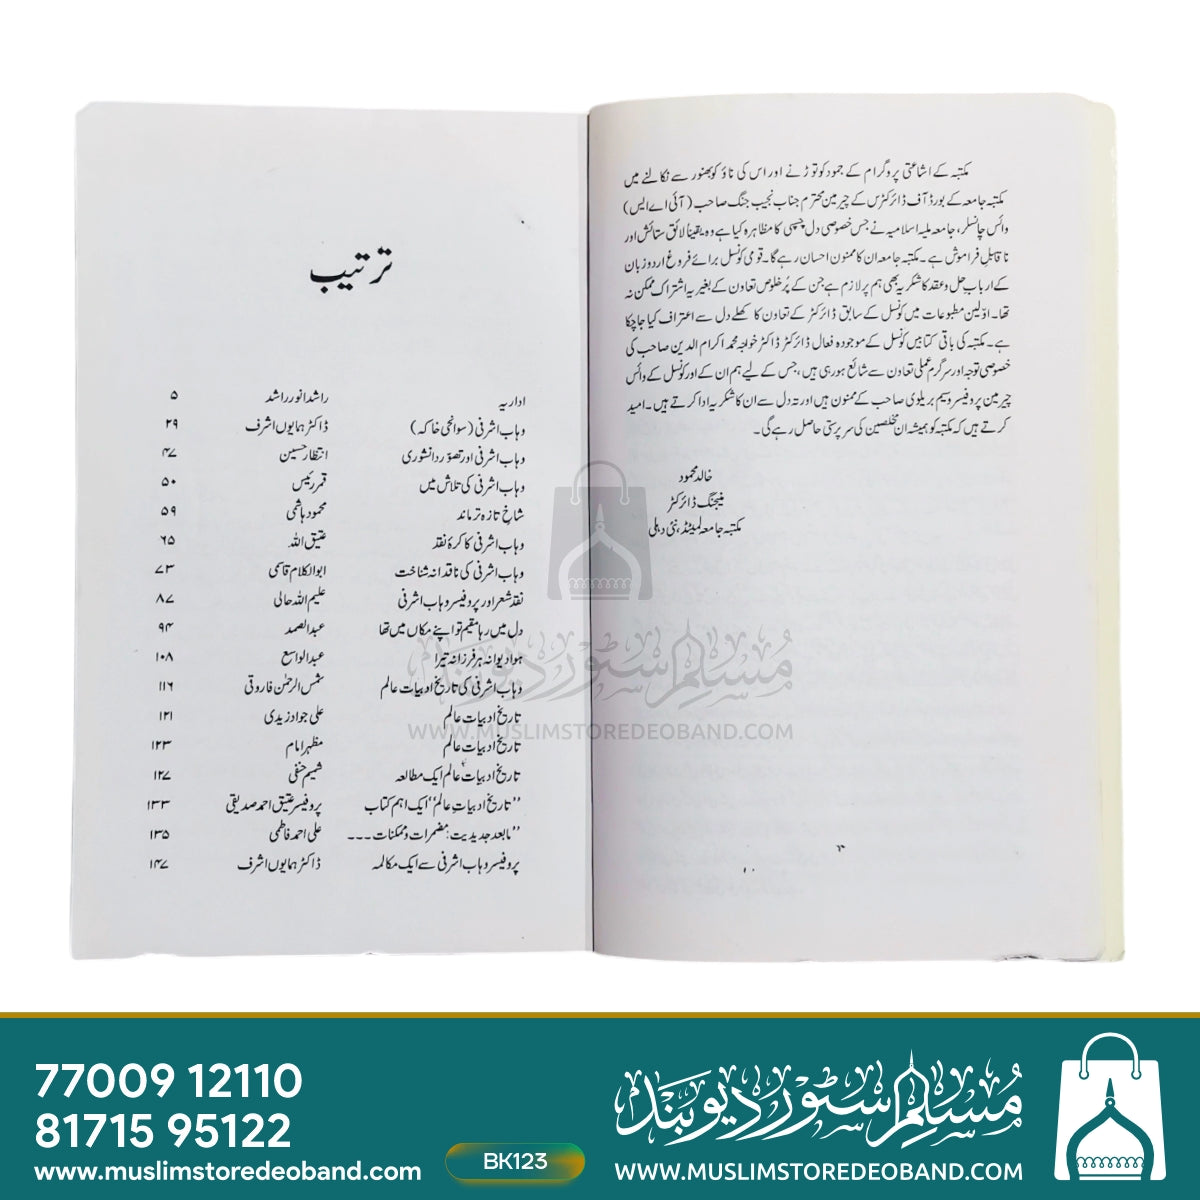 مکتبہ کے اشاعتی پروگرام کے جمود کو توڑنے اور اس کی ناؤ کو بھنور سے نکالنے میں
مکتبہ جامعہ کے بورڈ آف ڈائرکٹرس کے چیرمین محترم جناب نجیب جنگ صاحب (آئی اے ایس)
وائس چانسلر، جامعہ ملیہ اسلامیہ نے جس خصوصی دل چسپی کا مظاہرہ کیا ہے وہ یقیناً لائق ستائش اور
ناقابلِ فراموش ہے۔ مکتبہ جامعہ ان کا ممنون احسان رہے گا۔ قومی کونسل برائے فروغ اردو زبان
کے ارباب حل و عقد کا شکریہ بھی ہم پر لازم ہے جن کے پُرخلوص تعاون کے بغیر یہ اشتراک ممکن نہ
تھا۔ اوّلین مطبوعات میں کونسل کے سابق ڈائرکٹر کے تعاون کا کھلے دل سے اعتراف کیا جا چکا
ہے۔ مکتبہ کی باقی کتابیں کونسل کے موجودہ فعال ڈائرکٹر ڈاکٹر خواجہ محمد اکرام الدین صاحب کی
خصوصی توجہ اور سرگرم عملی تعاون سے شائع ہو رہی ہیں، جس کے لیے ہم ان کے اور کونسل کے وائس
چیرمین پروفیسر وسیم بریلوی صاحب کے ممنون ہیں اور تہ دل سے ان کا شکریہ ادا کرتے ہیں۔ امید
کرتے ہیں کہ مکتبہ کو ہمیشہ ان مخلصین کی سرپرستی حاصل رہے گی۔
خالد محمود
منیجنگ ڈائرکٹر
مکتبہ جامعہ لمیٹڈ، نئی دہلی
۴
ترتیب
اداریہ راشد انور راشد ۵
وہاب اشرفی (سوانحی خاکہ) ڈاکٹر ہمایوں اشرف ۲۹
وہاب اشرفی اور تصوّر دانشوری انتظار حسین ۴۷
وہاب اشرفی کی تلاش میں قمر رئیس ۵۰
شاخ تازہ تر ماند محمود ہاشمی ۵۹
وہاب اشرفی کا کرۂ نقد عتیق اللہ ۶۵
وہاب اشرفی کی ناقدانہ شناخت ابوالکلام قاسمی ۷۳
نقد شعر اور پروفیسر وہاب اشرفی علیم اللہ حالی ۸۷
دل میں رہا مقیم تو اپنے مکاں میں تھا عبدالصمد ۹۴
ہوا دیوانہ ہر فرزانہ تیرا عبدالواسع ۱۰۸
وہاب اشرفی کی تاریخ ادبیات عالم شمس الرحمٰن فاروقی ۱۱۶
تاریخ ادبیات عالم علی جواد زیدی ۱۲۱
تاریخ ادبیات عالم مظہر امام ۱۲۳
تاریخ ادبیات عالم ایک مطالعہ شمیم حنفی ۱۲۷
”تاریخ ادبیاتِ عالم“ ایک اہم کتاب پروفیسر عتیق احمد صدیقی ۱۳۳
”مابعد جدیدیت: مضمرات و ممکنات ۔۔۔ علی احمد فاطمی ۱۳۵
پروفیسر وہاب اشرفی سے ایک مکالمہ ڈاکٹر ہمایوں اشرف ۱۴۷
مسلم سٹور دیوبند
WWW.MUSLIMSTOREDEOBAND.COM
77009 12110
81715 95122
www.muslimstoredeoband.com
BK123
مسلم سٹور دیوبند
WWW.MUSLIMSTOREDEOBAND.COM